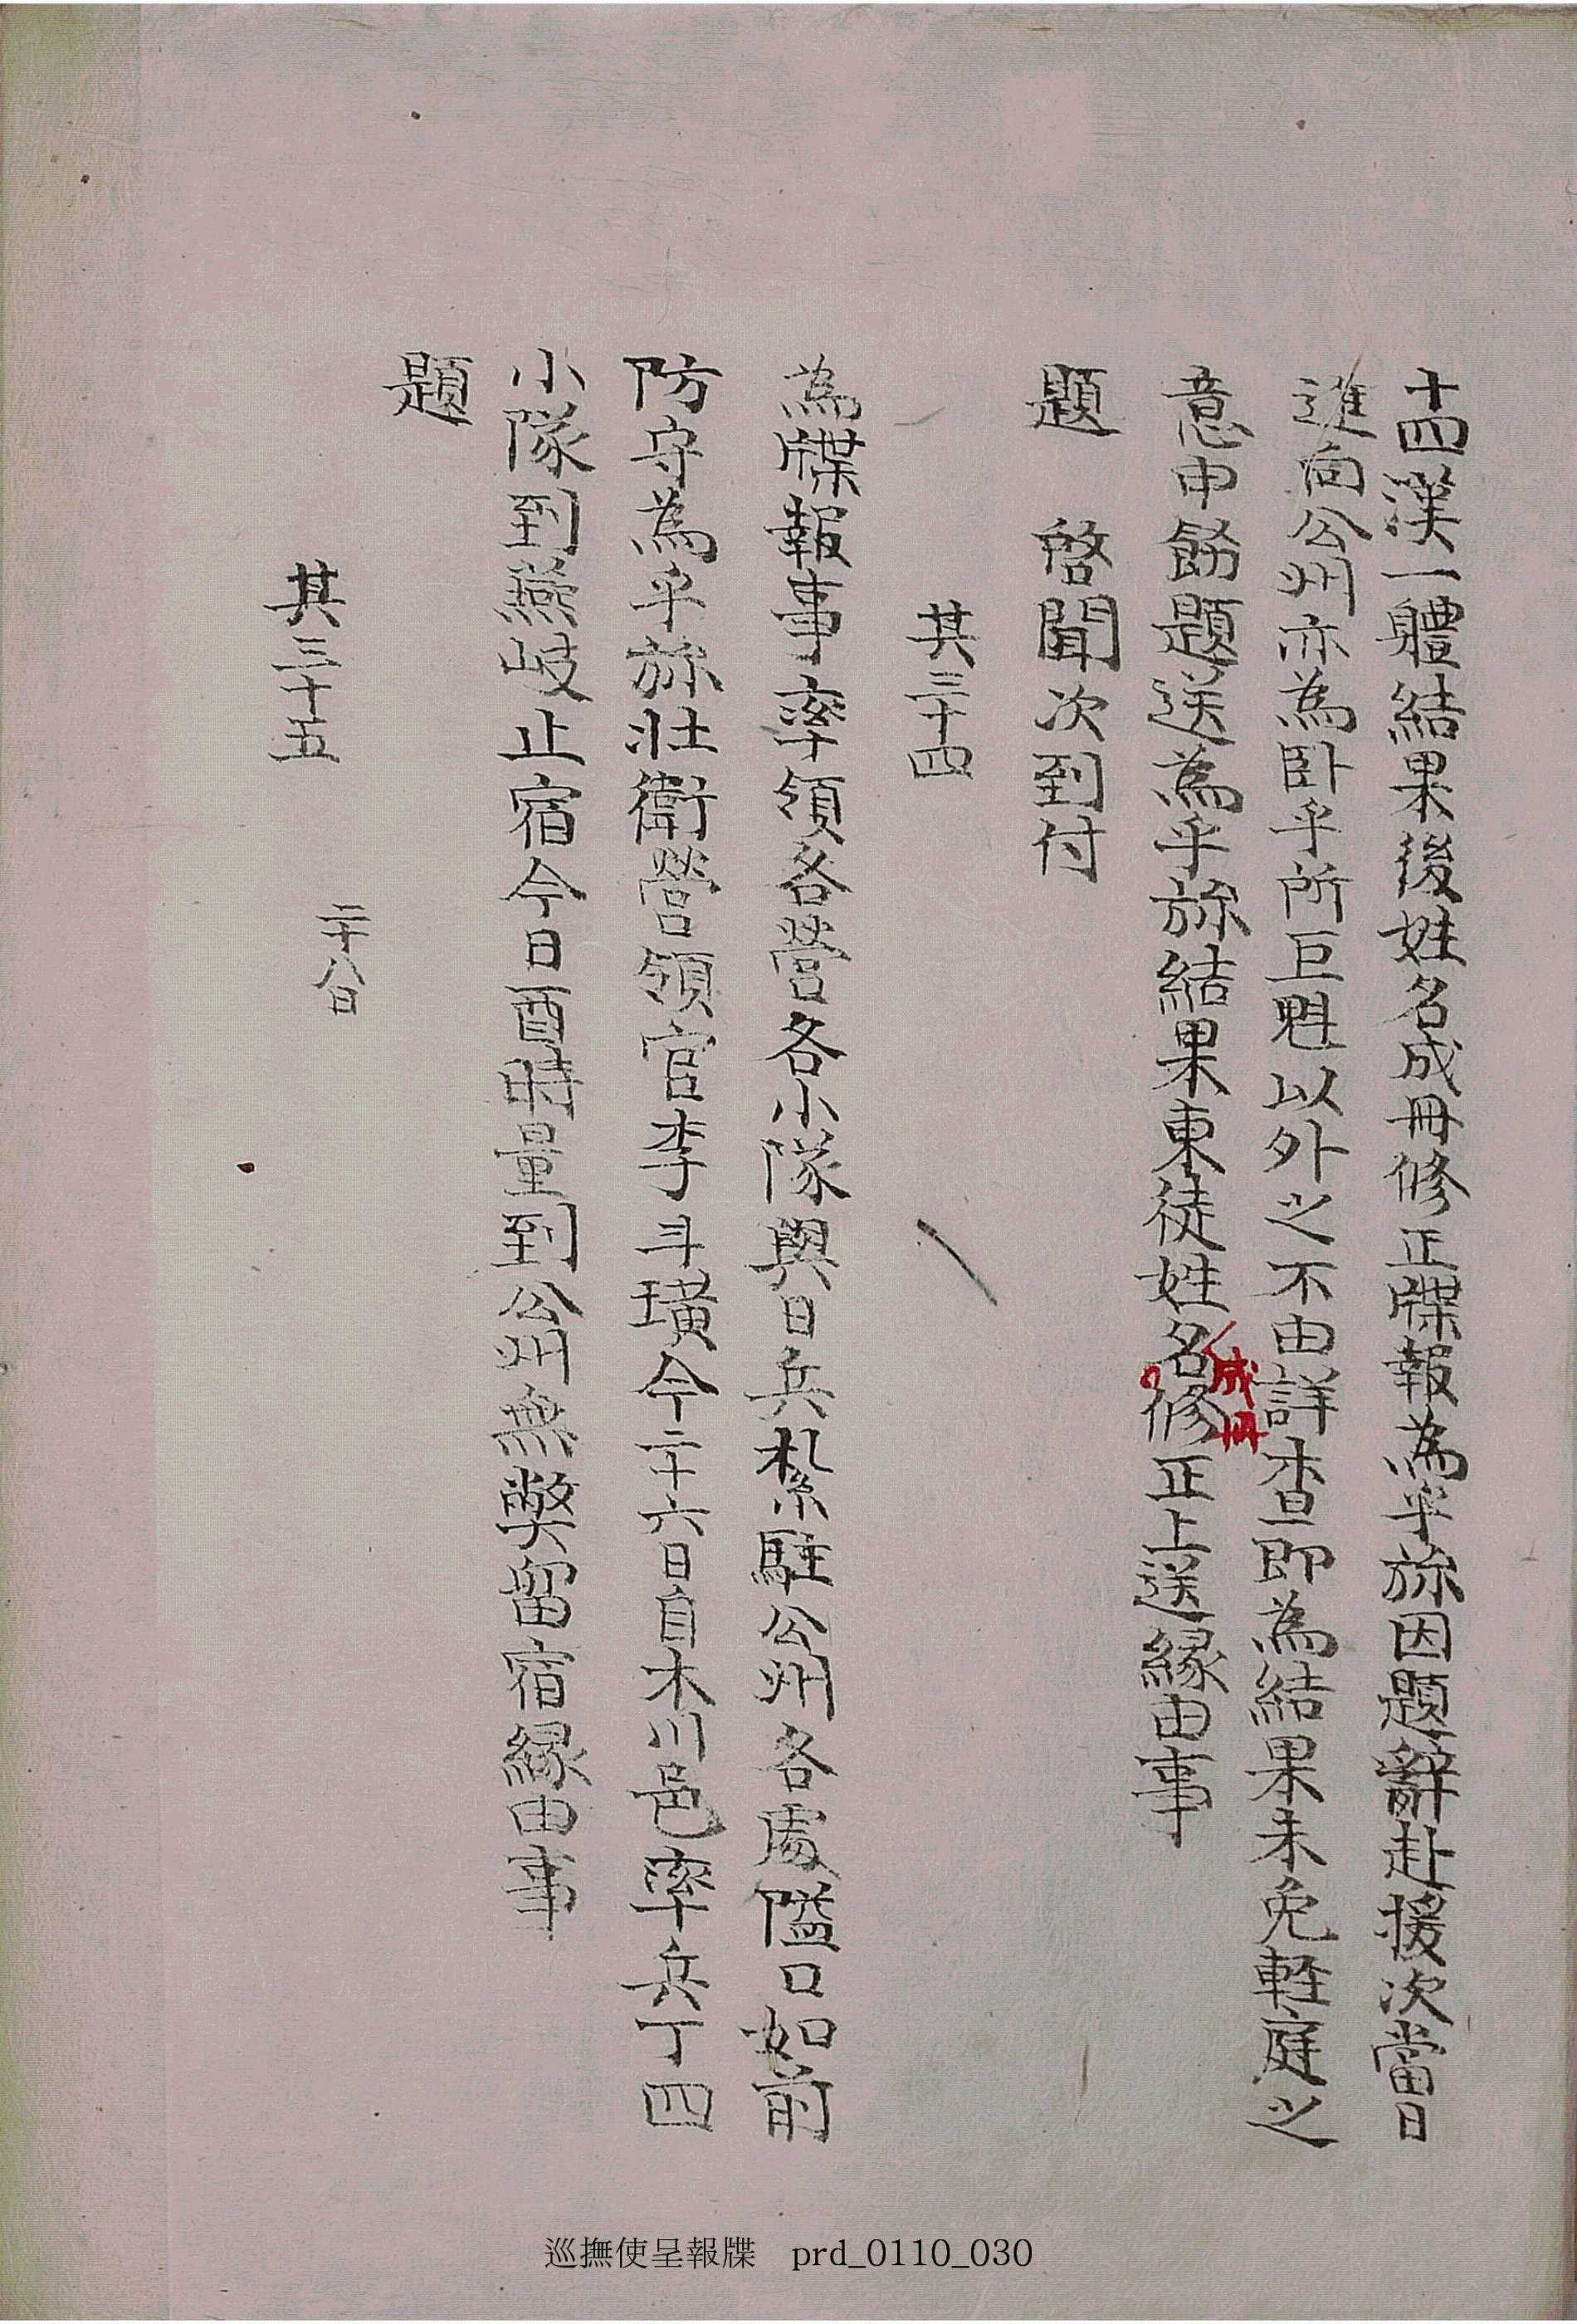 十四漢一體結果後姓名成冊修正牒報為乎旀因題辭赴援次當日
進向公州亦為卧乎所巨魁以外之不由詳查即為結果未免輕庭之
意申飭題送為乎旀結果東徒姓名成冊修正上送緣由事
題 啓聞次到付
其三十四
為牒報事率領各營各小隊與日兵紮駐公州各處隘口如前
防守為乎旀壯衛營領官李斗璜今二十六日自木川邑率兵丁四
小隊到燕岐止宿今日酉時量到公州無弊留宿緣由事
題
二十八日
其三十五
巡撫使呈報牒 prd_0110_030